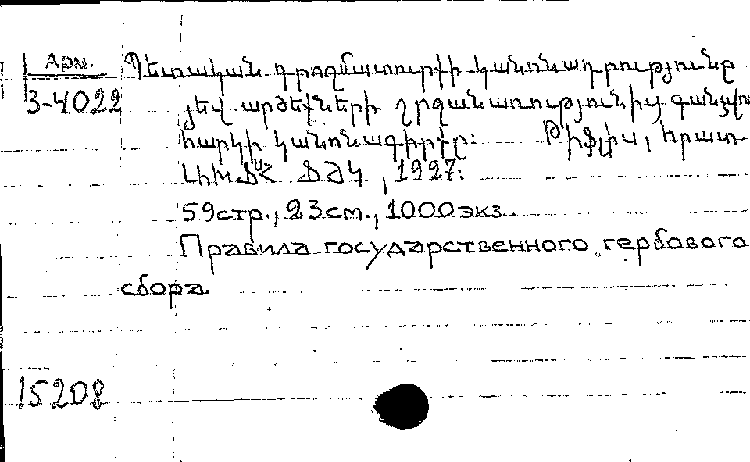 Арм.
Պետական դրոշմատուրքի կանոնադրությունը
3-4022
յեվ արժեքների շրջանառությունից գանձվող
հարկի կանոնագիրքը: Թիֆլիս, հրատ
ԱԽՍՖՀ ՖԺԿ, 1927:
59стр., 23см., 1000экз.
Правила государственного гербового
сбора
15208